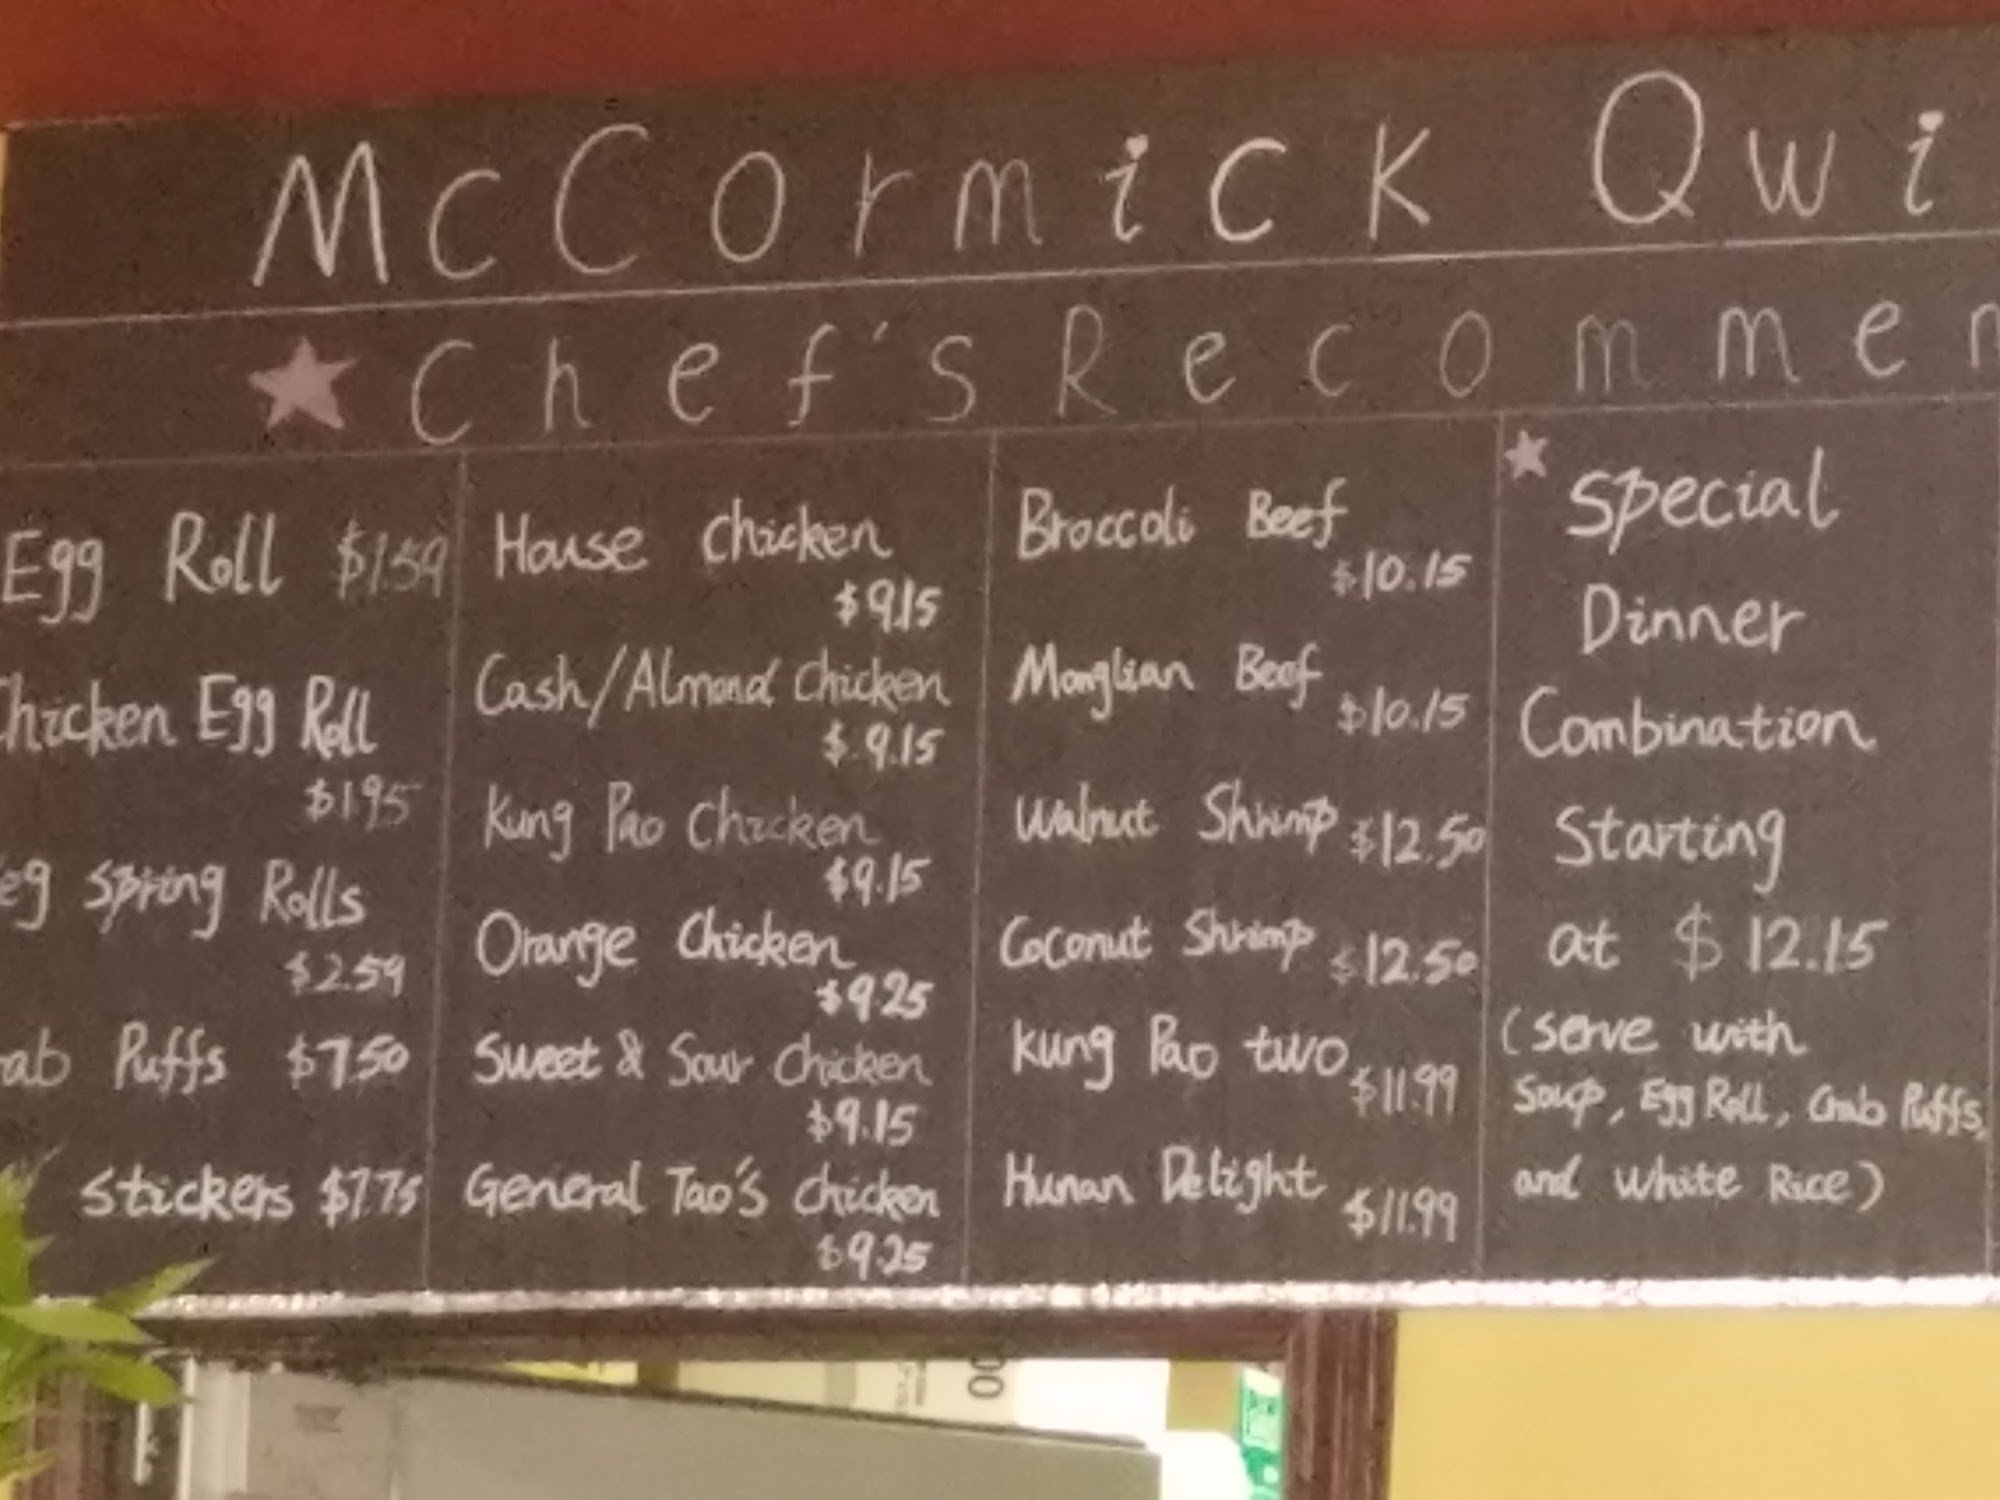 McCormick Qwi
Chef's Recommen
Egg Roll $1.59
Chicken Egg Roll
$1.95
eg Spring Rolls
$2.59
rab Puffs $7.50
Stickers $7.75
House Chicken
$9.15
Cash/Almond Chicken
$9.15
Kung Pao Chicken
$9.15
Orange Chicken
$9.25
Sweet & Sour Chicken
$9.15
General Tao's Chicken
$9.25
Broccoli Beef
$10.15
Monglian Beef
$10.15
Walnut Shrimp $12.50
Coconut Shrimp $12.50
Kung Pao two
$11.99
Hunan Delight
$11.99
Special
Dinner
Combination
Starting
at $12.15
(serve with
Soup, Egg Roll, Crab Puffs,
and White Rice)
00